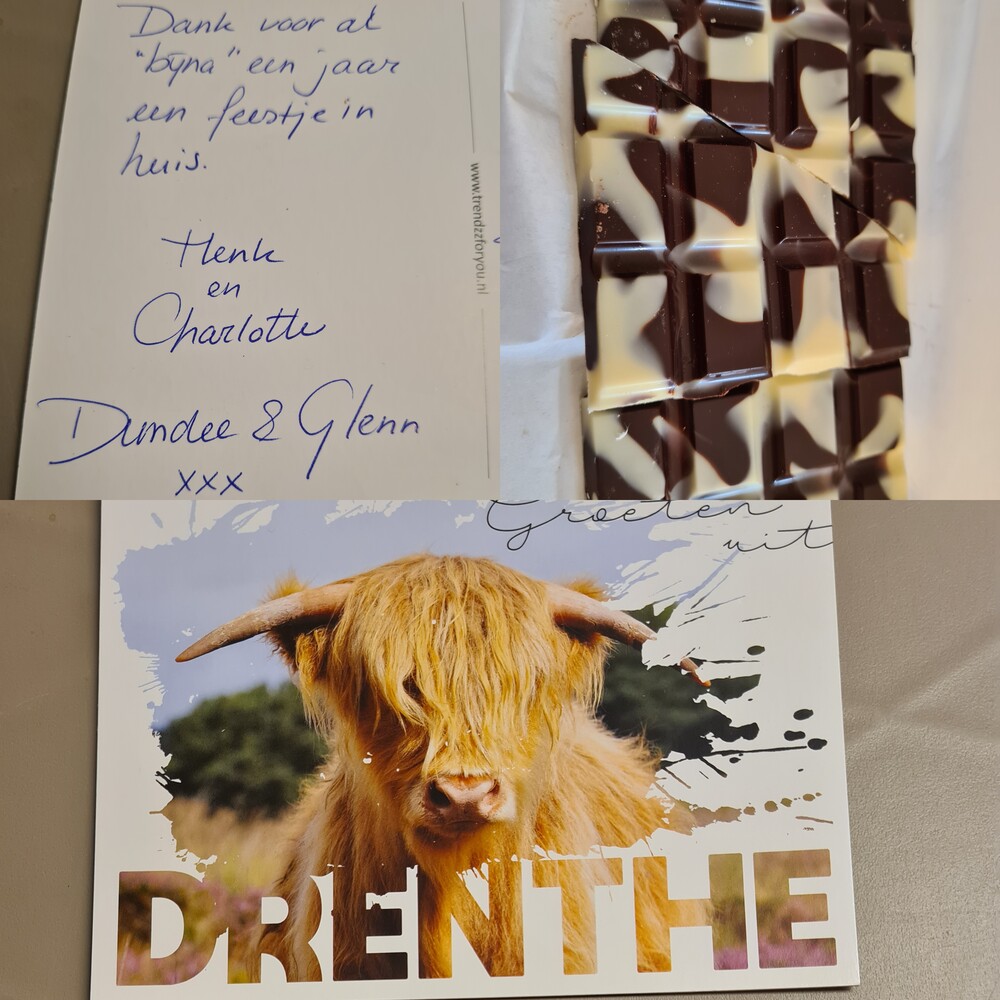 Dank voor al
"bijna" een jaar
een feestje in
huis.
Henk
en
Charlotte
Dundee & Glenn
xxx
www.trendzzforyou.nl
Groeten
uit
DRENTHE